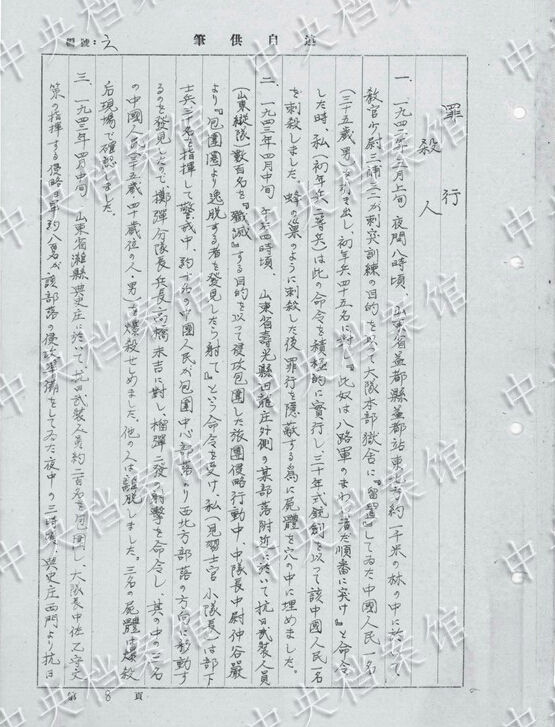 筆供自述
罪行
殺人
一、一九四二年二月上旬 夜間八時頃、山東省益都縣益都站東北方約一千米の林の中に於いて
教官少尉三浦三二が刺突訓練の目的を以って大隊本部獄舎に『留置』してゐた中國人民一名
(三十五歳男)を引き出し、初年兵四十五名に対し『此奴は八路軍のまわし者だ順番に突け』と命令
した時、私(初年兵、二等兵)は此の命令を積極的に實行し、三十年式銃劍を以って該中國人民一名
を刺殺しました。蜂の巣のように刺殺した後罪行を隠蔽する為に屍體を穴の中に埋めました。
二、一九四三年四月中旬 午后四時頃、山東省壽光縣田龍庄外側の某部落附近に於いて抗日武装人員
(山東縦隊)数百名を『殲滅』する目的を以って侵攻包囲した旅團侵略行動中、中隊長中尉神谷嚴
より『包圍圏より逃脱する者を發見したら射て』という命令を受け、私(見習士官 小隊長)は部下
士兵三十名を指揮して警戒中、約 名の中國人民が包圍中心部落より西北方部落の方向に移動す
るのを發見したので擲彈分隊長兵長高橋末吉に対し、榴彈二發の射撃を命令し、其の中の三名
の中國人民(三十五歳−四十歳位の人・男)を爆殺せしめました。他の人は離脱しました。三名の屍體は爆殺
后現場で確認しました。
三、一九四三年四月中旬 山東省濰縣典史庄に於いて、抗日武装人員約二百名を包囲し、大隊長中佐乙守文
策の指揮する侵略日軍約八百名が該部落の侵攻準備をしてゐた夜中の三時頃、典史庄西門より抗日
第 8 頁
中央档案馆